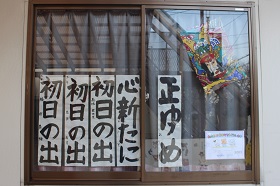 正ゆめ
心新たに
初日の出
初日の出
初日の出